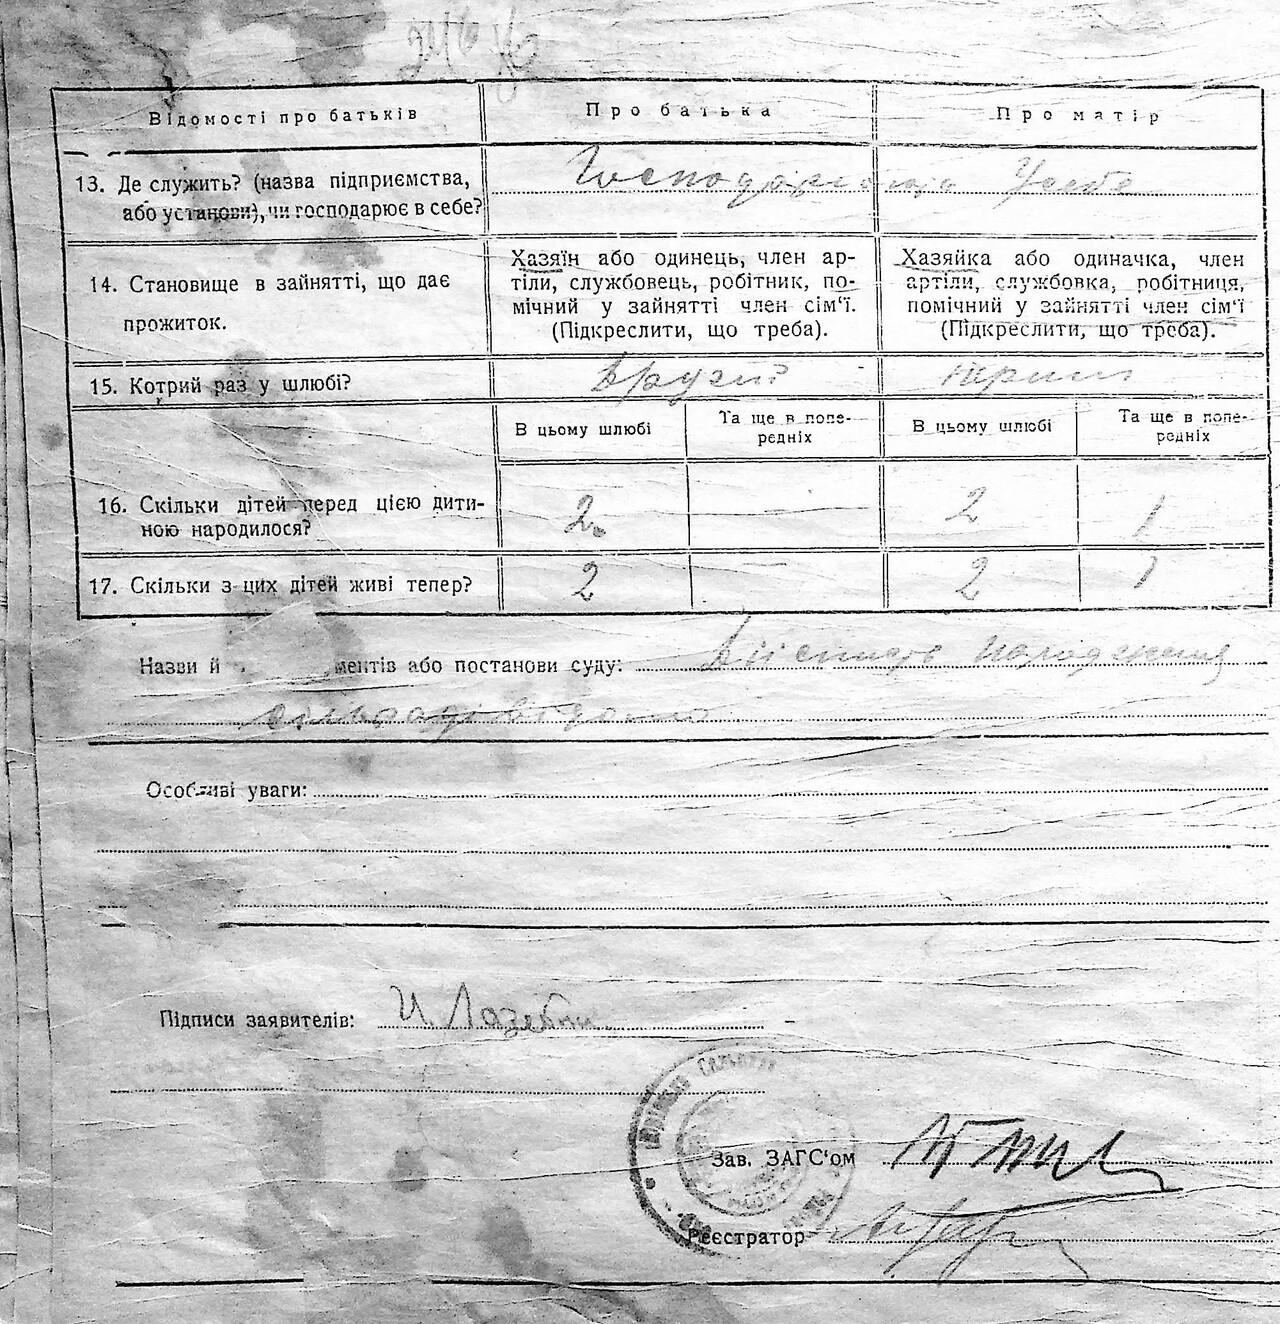 Відомості про батьків
Про батька
Про матір
13. Де служить? (назва підприємства,
або установи), чи господарює в себе?
14. Становище в зайнятті, що дає
прожиток.
Хазяїн або одинець, член ар-
тіли, службовець, робітник, по-
мічний у зайнятті член сім'ї.
(Підкреслити, що треба).
Хазяйка або одиначка, член
артіли, службовка, робітниця,
помічний у зайнятті член сім'ї
(Підкреслити, що треба).
15. Котрий раз у шлюбі?
В цьому шлюбі
Та ще в попе-
редніх
В цьому шлюбі
Та ще в попе-
редніх
16. Скільки дітей перед цією дити-
ною народилося?
2 — 2 1
17. Скільки з цих дітей живі тепер?
2 — 2 1
Назви й ментів або постанови суду:
Особливі уваги:
Підписи заявителів: И. Лазебни
Зав. ЗАГС'ом
Реєстратор